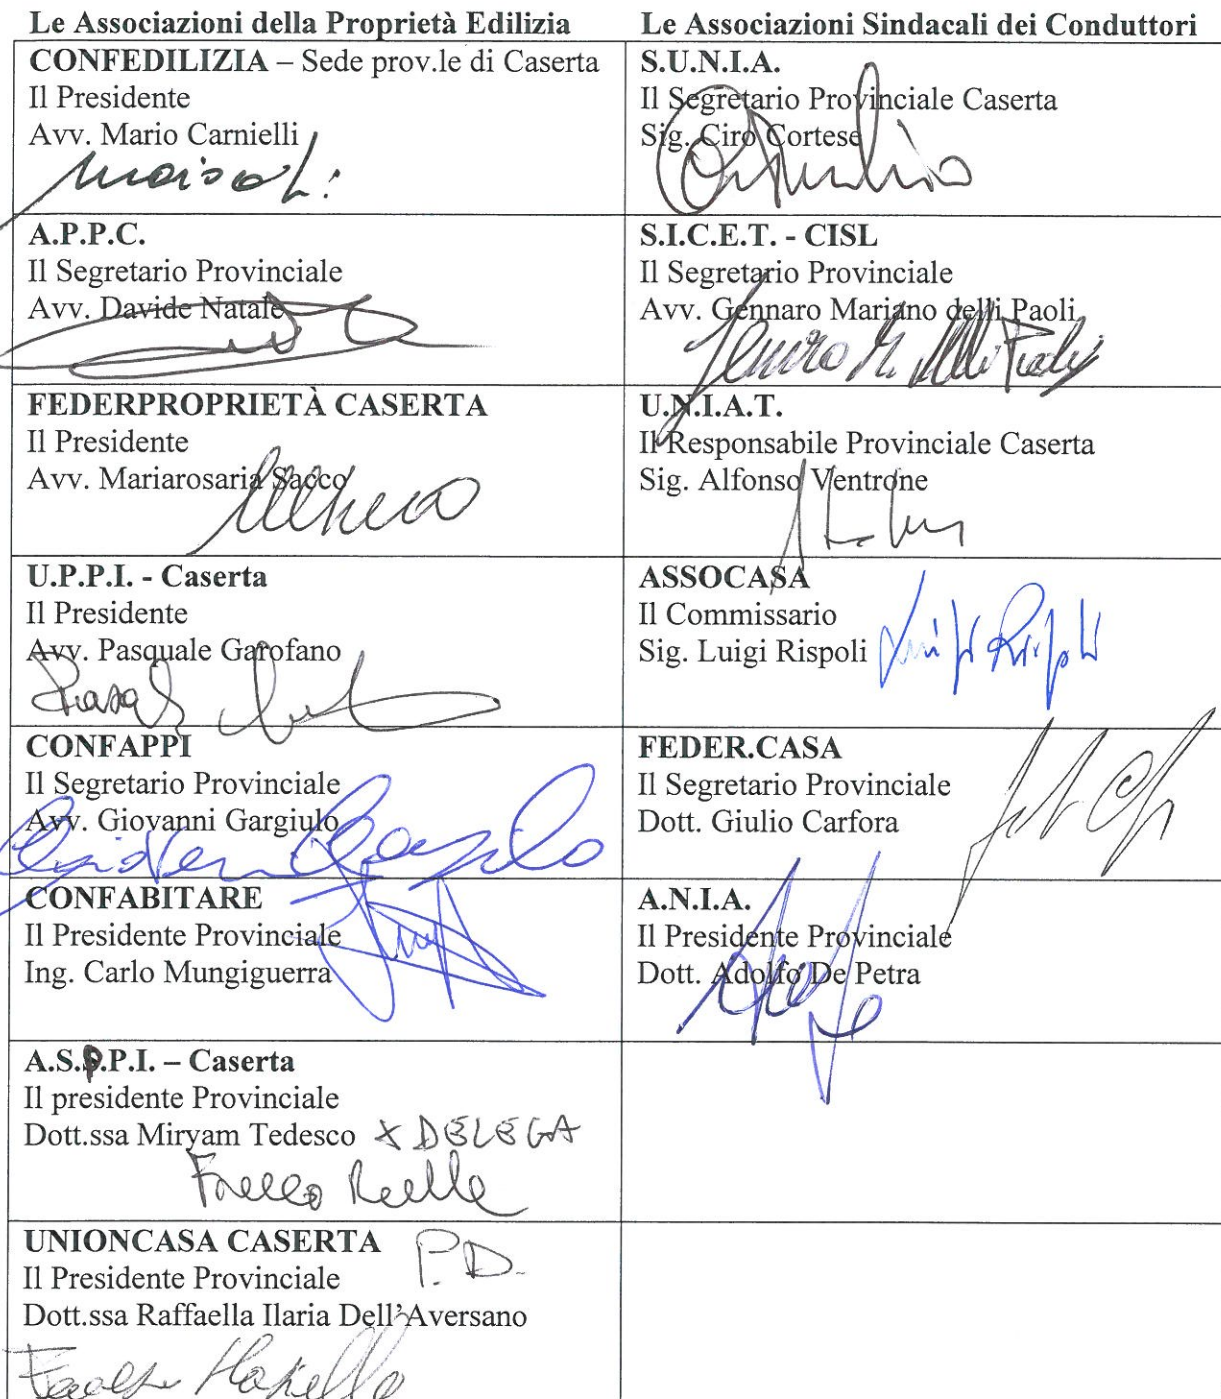 Le Associazioni della Proprietà Edilizia
Le Associazioni Sindacali dei Conduttori
CONFEDILIZIA – Sede prov.le di Caserta
Il Presidente
Avv. Mario Carnielli
S.U.N.I.A.
Il Segretario Provinciale Caserta
Sig. Ciro Cortese
A.P.P.C.
Il Segretario Provinciale
Avv. Davide Natale
S.I.C.E.T. - CISL
Il Segretario Provinciale
Avv. Gennaro Mariano delli Paoli
FEDERPROPRIETÀ CASERTA
Il Presidente
Avv. Mariarosaria Sacco
U.N.I.A.T.
Il Responsabile Provinciale Caserta
Sig. Alfonso Ventrone
U.P.P.I. - Caserta
Il Presidente
Avv. Pasquale Garofano
ASSOCASA
Il Commissario
Sig. Luigi Rispoli
Luigi Rispoli
CONFAPPI
Il Segretario Provinciale
Avv. Giovanni Gargiulo
FEDER.CASA
Il Segretario Provinciale
Dott. Giulio Carfora
CONFABITARE
Il Presidente Provinciale
Ing. Carlo Mungiguerra
A.N.I.A.
Il Presidente Provinciale
Dott. Adolfo De Petra
A.S.P.P.I. – Caserta
Il presidente Provinciale
Dott.ssa Miryam Tedesco X DELEGA
UNIONCASA CASERTA P.D.
Il Presidente Provinciale
Dott.ssa Raffaella Ilaria Dell'Aversano